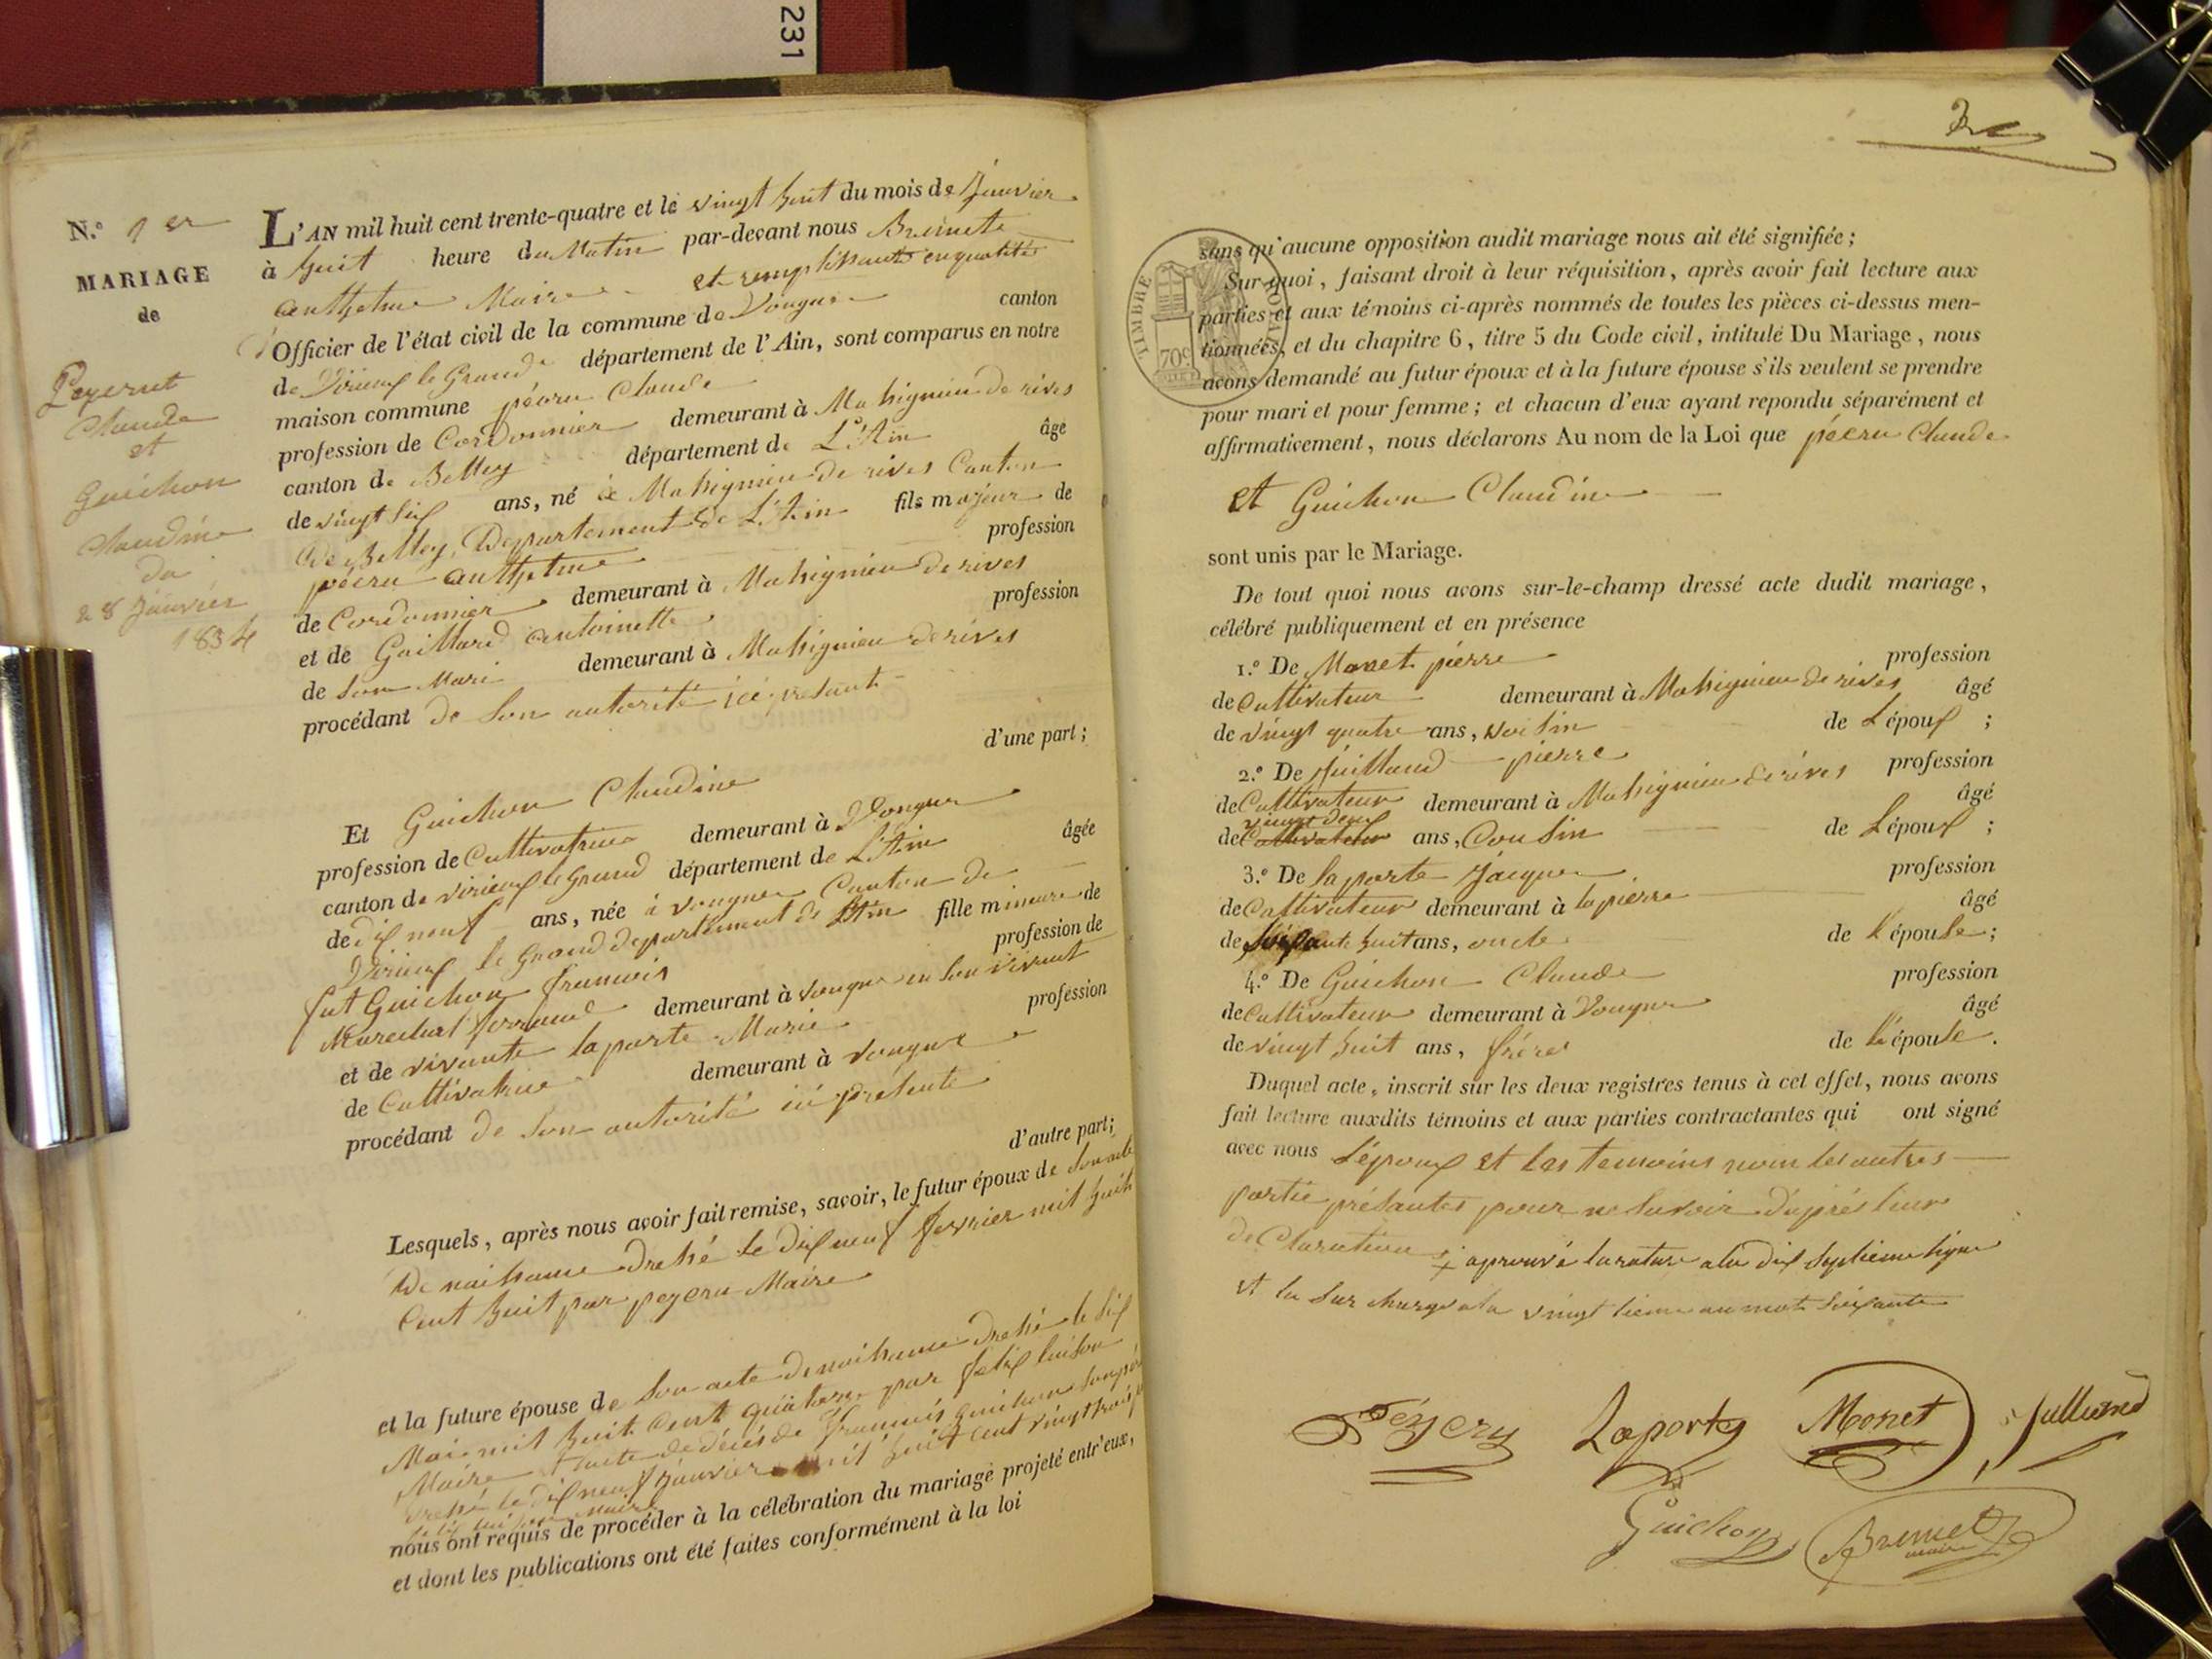 231
N.º 1er
MARIAGE
de
Peyerut
Claude
et
Guichon
Claudine
du
28 Janvier
1834
L'AN mil huit cent trente-quatre et le vingt huit du mois de Janvier
à huit heure du Matin par-devant nous Brunet
anthelme Maire et remplissant en qualité
d'Officier de l'état civil de la commune de Vongne canton
de Virieux le Grand département de l'Ain, sont comparus en notre
maison commune péeru Claude
profession de Cordonnier demeurant à Massignieu de rives
canton de Belley département de L'Ain âgé
de vingt six ans, né à Massignieu de rives Canton
de Belley, Departement de L'Ain fils majeur de
péeru anthelme profession
de Cordonnier demeurant à Massignieu de rives
et de Gaillard antoinette profession
de son Mari demeurant à Massignieu de rives
procédant de son autorité ici présent
d'une part;
Et Guichon Claudine
profession de Cultivatrice demeurant à Vongne
canton de virieux le Grand département de L'Ain âgée
de dix neuf ans, née à vongne Canton de
Virieux le Grand departement de L'Ain fille mineure de
fut Guichon francois profession de
Marechal ferrand demeurant à vongne en son vivant
et de vivante laporte Marie profession
de Cultivatrice demeurant à vongne
procédant de son autorité ici présente
d'autre part;
Lesquels, après nous avoir fait remise, savoir, le futur époux de son acte
De naissance Dressé le dix neuf fevrier mil huit
Cent huit par peyeru Maire
et la future épouse de son acte de naissance dressé le six
Mai mil huit Cent quatorze par felix
Maire et acte de décés de francois guichon son père
dressé le dix neuf janvier mil huit cent vingt trois
maire
nous ont requis de procéder à la célébration du mariage projeté entr'eux,
et dont les publications ont été faites conformément à la loi
TIMBRE ROYAL
70c
sans qu'aucune opposition audit mariage nous ait été signifiée;
Sur quoi, faisant droit à leur réquisition, après avoir fait lecture aux
parties et aux témoins ci-après nommés de toutes les pièces ci-dessus men-
tionnées, et du chapitre 6, titre 5 du Code civil, intitulé Du Mariage, nous
avons demandé au futur époux et à la future épouse s'ils veulent se prendre
pour mari et pour femme; et chacun d'eux ayant repondu séparément et
affirmativement, nous déclarons Au nom de la Loi que péeru Claude
et Guichon Claudine
sont unis par le Mariage.
De tout quoi nous avons sur-le-champ dressé acte dudit mariage,
célébré publiquement et en présence
1.º De Monet pierre profession
de Cultivateur demeurant à Massignieu de rives âgé
de vingt quatre ans, voisin de L'époux;
2.º De Juilland pierre profession
de Cultivateur demeurant à Massignieu de rives âgé
vingt deux
de Cultivateur ans, Cousin de L'époux;
3.º De laporte Jacques profession
de Cultivateur demeurant à lapierre âgé
de soixante huit ans, oncle de L'épouse;
4.º De Guichon Claude profession
de Cultivateur demeurant à Vongne âgé
de vingt huit ans, frére de L'épouse.
Duquel acte, inscrit sur les deux registres tenus à cet effet, nous avons
fait lecture auxdits témoins et aux parties contractantes qui ont signé
avec nous L'époux et les temoins non les autres
partie présantes pour ne Savoir d'aprés leur
de Claration aprouvé la rature a la dix septieme ligne
et la Sur charge a la vingt tieme au mot Soixante
Péyery Laporte Monet Julliand
Guichon Brunet
maire